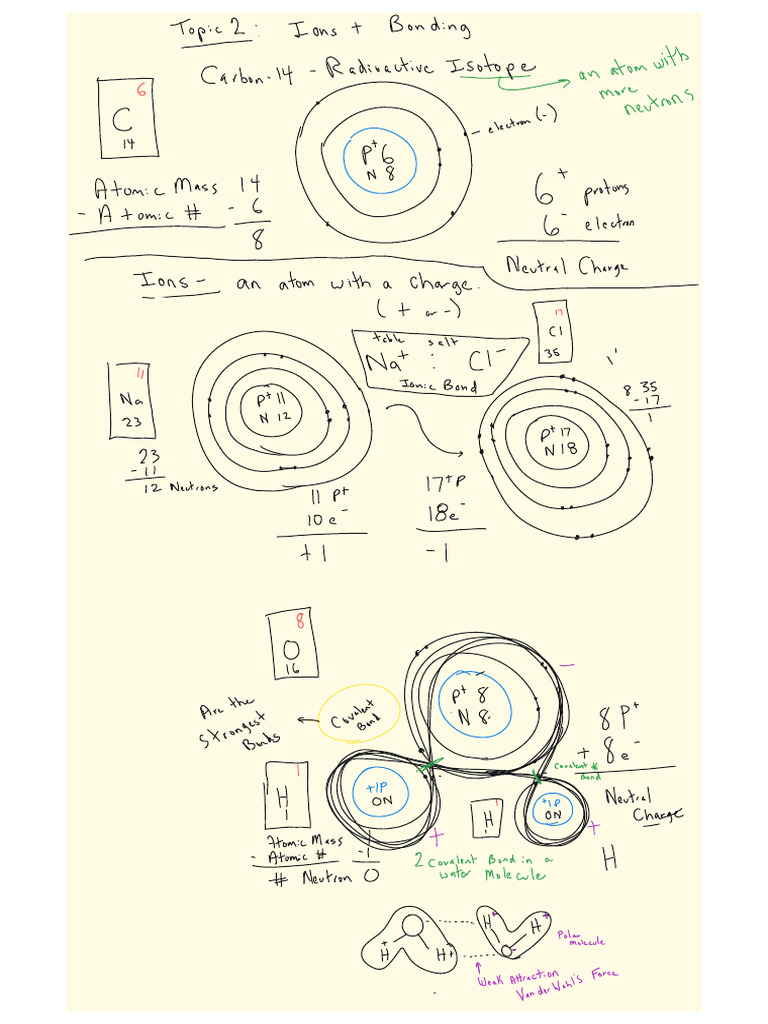 Topic 2: Ions + Bonding
Carbon-14 - Radioactive Isotope
an atom with
more
neutrons
6
C
14
electron (-)
P+ 6
N 8
Atomic Mass 14
- Atomic # - 6
8
6+ protons
6- electron
Neutral Charge
Ions - an atom with a charge.
(+ or -)
table salt
Na+ : Cl-
Ionic Bond
17
Cl
35
11
Na
23
P+ 11
N 12
P+ 17
N 18
8 35
-17
1
23
-11
12 Neutrons
11 P+
10 e-
+1
17+P
18e-
-1
8
O
16
P+ 8
N 8
-
Covalent
Bond
Are the
strongest
Bonds
8 P+
+ 8e-
Covalent
Bond
Neutral
Charge
1
H
1
+1P
0N
1
H
1
+1P
0N
+
+
H
Atomic Mass 1
- Atomic # -1
# Neutron 0
2 Covalent Bond in a
water Molecule
H+ H+
H+ H+
Polar
molecule
Weak Attraction
Van der Wahl's Force